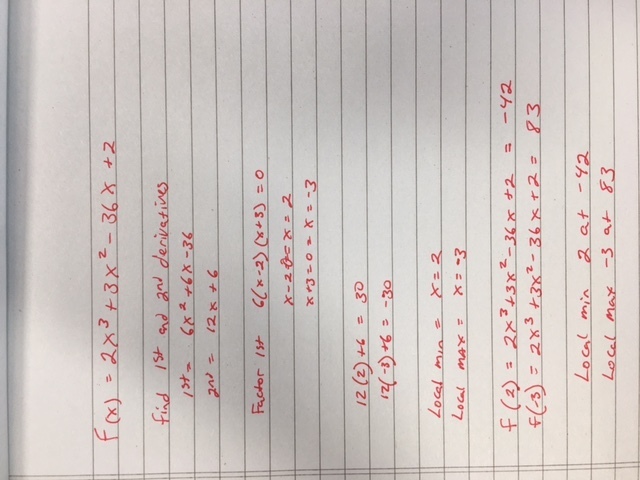 f(x) = 2x³ + 3x² - 36x + 2
find 1st and 2nd derivatives
1st = 6x² + 6x - 36
2nd = 12x + 6
Factor 1st 6(x-2)(x+3) = 0
x - 2 = x = 2
x+3 = 0 = x = -3
12(2)+6 = 30
12(-3)+6 = -30
Local min = x = 2
Local max = x = -3
f(2) = 2x³+3x²-36x+2 = -42
f(-3) = 2x³+3x²-36x+2 = 83
Local min 2 at -42
Local max -3 at 83